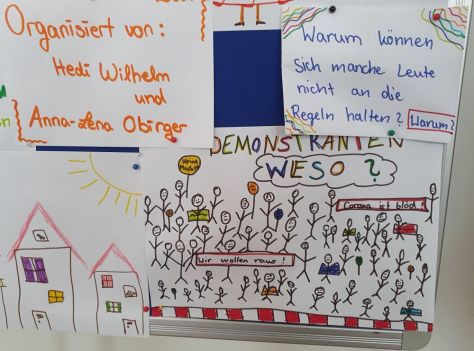 Organisiert von:
Hedi Wilhelm
und
Anna-Lena Obirger
Warum können
sich manche Leute
nicht an die
Regeln halten? Warum?
DEMONSTRANTEN
WESO?
Corona ist blöd!
Wir wollen raus!